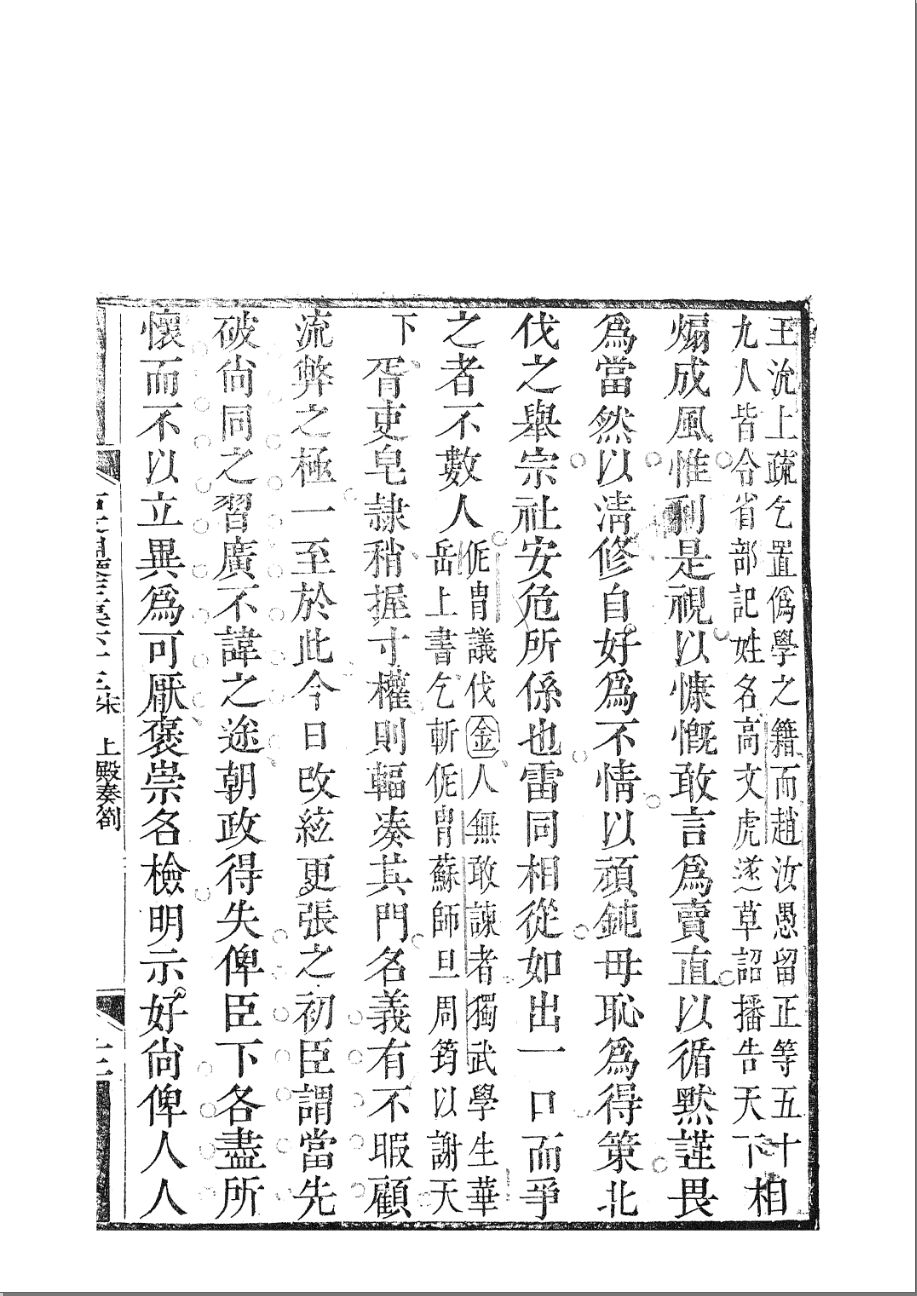 王沇上疏乞置僞學之籍而趙汝愚留正等五十
九人皆令省部記姓名高文虎遂草詔播告天下
相
煽成風惟利是視以慷慨敢言爲賣直以循默謹畏
爲當然以淸修自好爲不情以頑鈍毋恥爲得策北
伐之舉宗社安危所係也雷同相從如出一口而爭
之者不數人
侂胄議伐金人無敢諫者獨武學生華
岳上書乞斬侂胄蘇師旦周筠以謝天
下
胥吏皂隷稍握寸權則輻凑其門名義有不暇顧
流弊之極一至於此今日改絃更張之初臣謂當先
破尙同之習廣不諱之途朝政得失俾臣下各盡所
懷而不以立異爲可厭褒崇各檢明示好尙俾人人
上殿奏劄